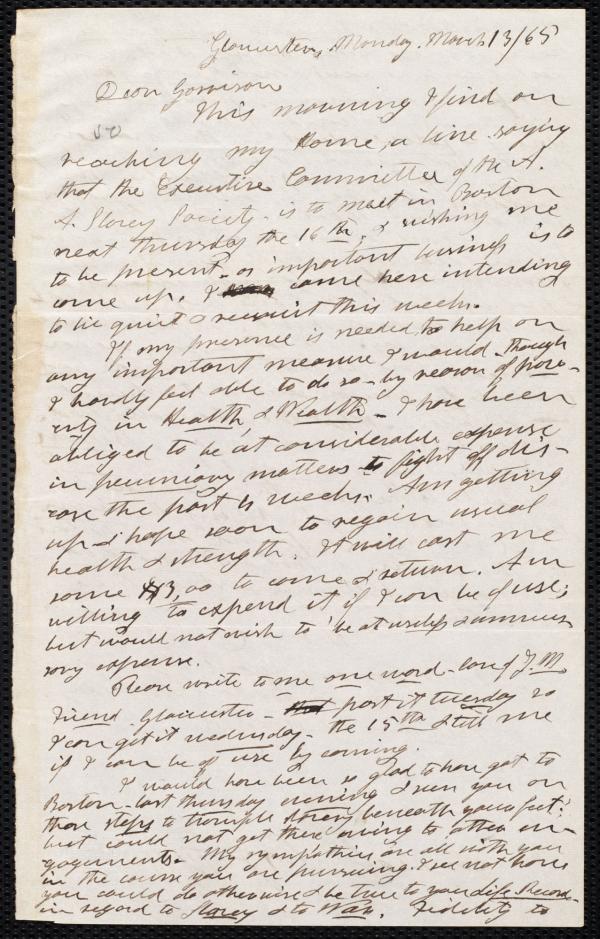 Gloucester, Monday. March 13/65
Dear Garrison
This morning I find on
reaching my home, a line saying
that the Executive Committee of the A.
A. Slavey Society is to meet in Boston
next Thursday the 16th, & wishing me
to be present, as important business is to
come up. I came here intending
to lie quiet & recruit this week.
If my presence is needed to help on
any important measure I would - though
I hardly feel able to do so - by reason of pov-
erty in Health, & Wealth - I have been
obliged to be at considerable expense
in pecuniary matters to fight off dis-
ease the past 6 weeks. Am getting
up & hope soon to regain usual
health & strength. It will cast me
some $13,00 to come & return. Am
willing to expend it if I can be of use;
but would not wish to be at useless & unneces-
sary expense.
Please write to me one word - care of J. M.
Friend. Gloucester - post it tuesday so
I can get it wednesday - the 15th & tell me
if I can be of use by coming.
I would have been so glad to have got to
Boston - last thursday evening & seen you on
those steps to trample slavery beneath your feet:
but could not get there owing to other en-
gagements. My sympathies are all with you
in the course you are pursuing. I see not how
you could do otherwise & be true to your life Record -
in regard to Slavey & to War. Fidelity to
50